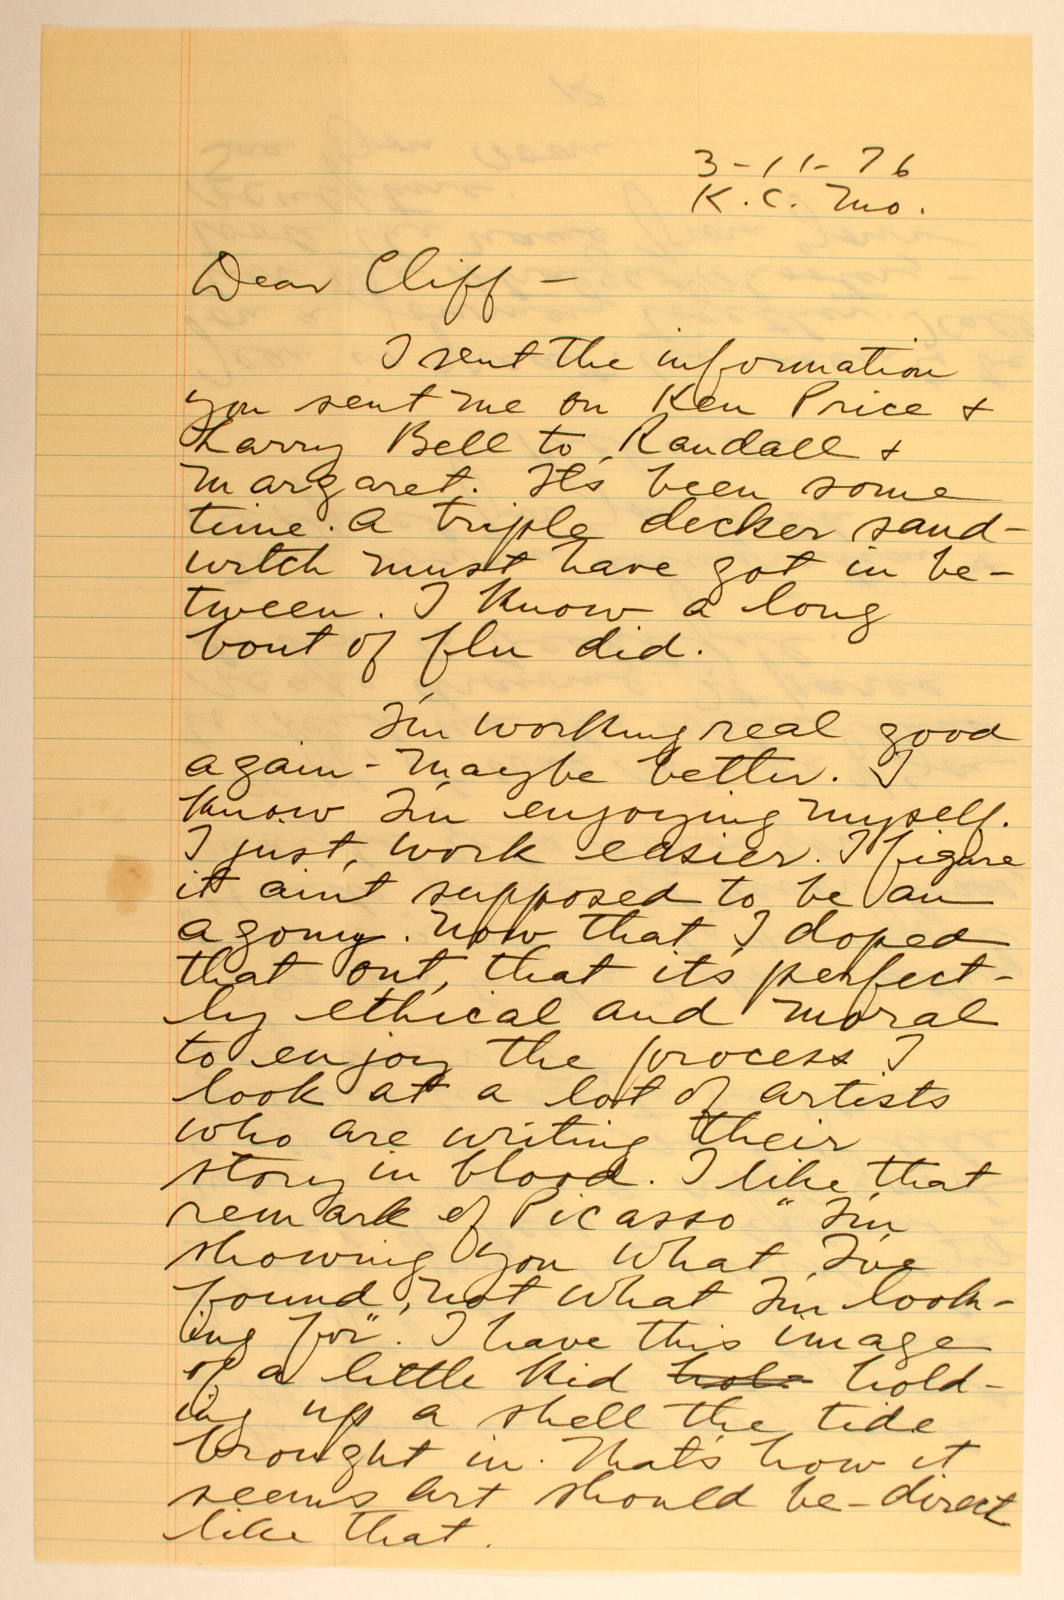 3-11-76
K.C. Mo.
Dear Cliff –
I sent the information
you sent me on Ken Price +
Larry Bell to Randall +
Margaret. It's been some
time. A triple decker sand-
witch must have got in be-
tween. I know a long
bout of flu did.
I'm working real good
again - maybe better. I
know I'm enjoying myself.
I just work easier. I figure
it ain't supposed to be an
agony. Now that I doped
that out, that it's perfect-
ly ethical and moral
to enjoy the process I
look at a lot of artists
who are writing their
story in blood. I like that
remark of Picasso "I'm
showing you what I've
found, not what I'm look-
ing for". I have this image
of a little kid hold-
ing up a shell the tide
brought in. That's how it
seems art should be - direct
like that.